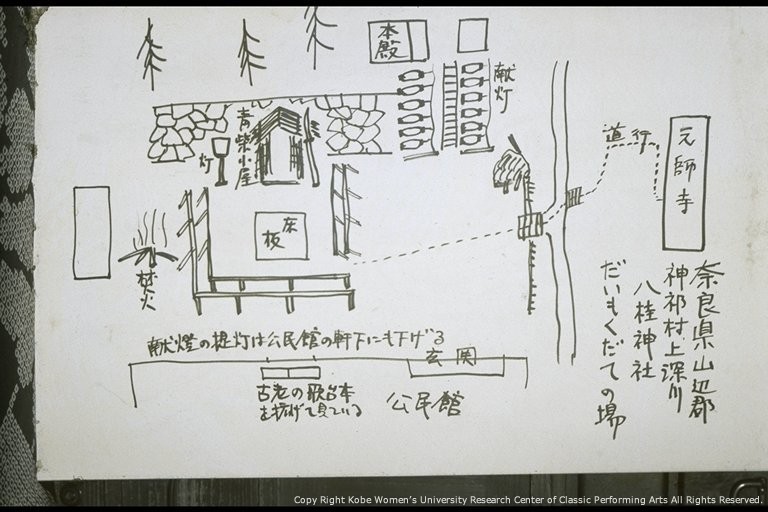 本殿
献灯
青柴小屋
灯
道行
元師寺
床板
焚火
奈良県山辺郡
神祁村上深川
八桂神社
だいもくだての場
献燈の提灯は公民館の軒下にも下げる
玄関
古老の歌台本
を拡げて見ている
公民館
Copy Right Kobe Women's University Research Center of Classic Performing Arts All Rights Reserved.